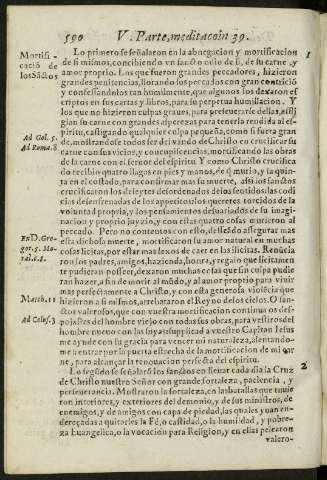 590 V. Parte, meditacoin 39.
Mortifi-
cació de
los Sãctos
Lo primero se señalaron en la abnegacion y mortificacion
de si mismos, concibiendo vn sancto odio de si, de su carne, y
amor proprio. Los que fueron grandes peccadores, hizieron
grandes penitencias, llorando sus peccados con gran contrició
y confessandolos tan humilmente, que algunos los dexaron es
criptos en sus cartas y libros, para su perpetua humillacion. Y
los que no hizieron culpas graues, para preseuerarse dellas,
su carne con grandes asperezas para tenerla rendida al es-
piritu, castigando qualquier culpa pequeña, como si fuera gran
Ad Gal. 5.
de, mostrandose todos ser del vando de Christo en crucificar su
Ad Roma. 8
carne con sus vicios, y concupiscencias, mortificando las obras
de la carne con el feruor del espiritu. Y como Christo crucifica
do recibio quatro llagos en pies y manos, de q̃ murio, y la quin-
ta en el costado, para confirmar mas su muerte, assi los sanctos
crucificaron los deleytes desordenados de los sentidos, las codi
cias desenfrenadas de los appetitos, los quereres torcidos de la
voluntad propria, y los pensamientos desuariados de su imagi-
nacion y proprio juyzio, y con estas quatro cosas murieron al
peccado. Pero no contentos con esto, desseãdo assegurar mas
Ex D. Gre-
gor. 5. Mo-
ral. c. 4.
esta dichosa muerte, mortificaron su amor natural en muchas
cosas licitas, por estar mas lexos de caer en las ilicitas. Renũcia
ron los padres, amigos, hazienda, honra, y regalo que licitamen
te pudieran posseer, dexaron muchas cosas que sin culpa pudie
ran hazer, a fin de morir al mũdo, y al amor proprio para viuir
mas perfectamente a Christo, y con esta generosa violẽcia que
Matth. 11
hizieron a si mismos, arrebataron el Reyno de los cielos. O san-
ctos valerosos, que con vuestra mortificacion continua os des-
Ad Colos. 3
pojastes del hombre viejo con todas sus obras, para vestiros del
hombre nueuo con las suyas: supplicad a vuestro Capitan Iesus
me ayude con su gracia para vencer mi naturaleza, alentando-
me a entrar por la puerta estrecha de la mortificacion de mi car
ne, para alcançar la renouacion perfecta del espiritu.
2
Lo segũdo se señalarõ los sanctos en lleuar cada dia la Cruz
de Christo nuestro Señor con grande fortaleza, paciencia, y
perseuerancia. Mostraron la fortaleza, en las batallas que tuuie
ron interiores, y exteriores del demonio, y de sus ministros, de
enemigos, y de amigos con capa de piedad, las quales yuan en-
dereçadas a quitarles la Fé, o castidad, o la humildad, y pobre-
za Euangelica, o la vocacion para Religion, y en ellas pelearon
valero-